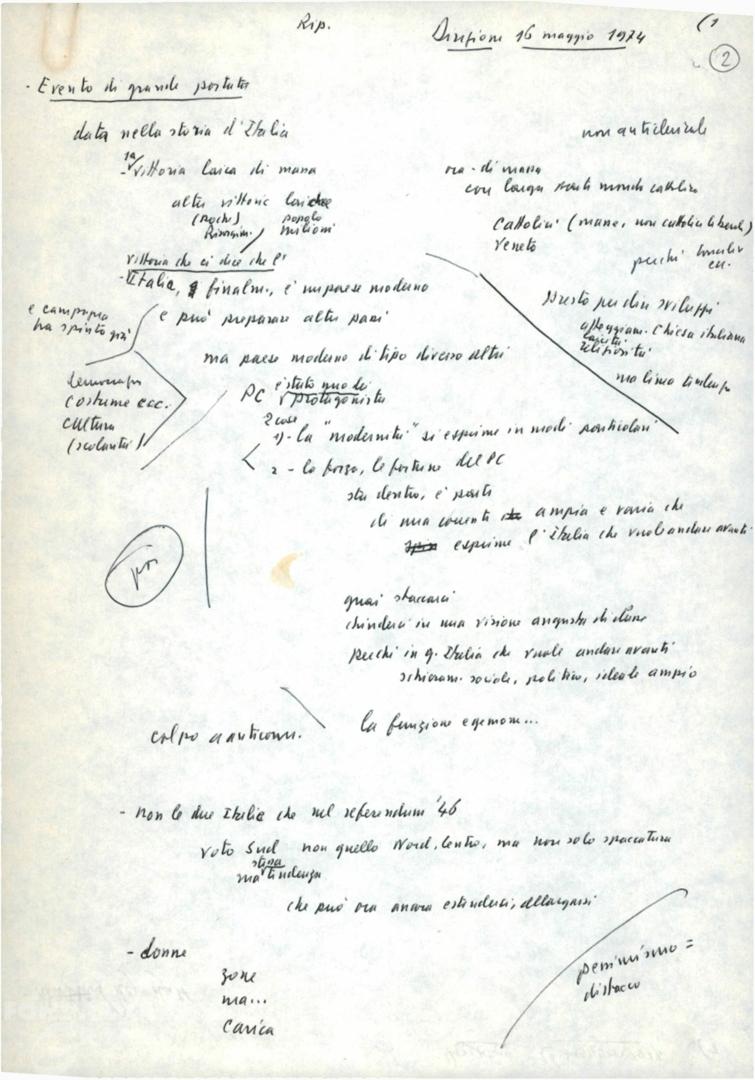 Rip.
Direzione 16 maggio 1974
(1
2
- Evento di grande portata
data nella storia d'Italia
non anticlericale
1a
- Vittoria laica di massa
ora - di massa
con larga parte mondo cattolico
altre vittorie laiche
(poche) popolo
Risorgim. milioni
Cattolici (masse, non cattolici liberali)
Veneto
perché
ecc.
vittoria che ci dice che l'
- Italia, finalm., è un paese moderno
e può preparare altri passi
e campagna
ha spinto giù
Presto per dire sviluppi
atteggiam. Chiesa italiana
religiosità
ma linea tendenza
ma paese moderno di tipo diverso altri
costume ecc.
cultura
(scolarità)
PC è stato uno dei
protagonisti
2 cose
1) - la "modernità" si esprime in modi particolari
2 - la forza, le fortune del PC
sta dentro, è parte
di una corrente ampia e varia che
esprime l'Italia che vuole andare avanti
poi
guai staccarsi
chiudersi in una visione angusta di classe
perché in q. Italia che vuole andare avanti
schieram. sociale, politico, ideale ampio
la funzione egemone...
colpo a anticom.
- non le due Italie che nel referendum '46
voto Sud non quello Nord, Centro, ma non solo spaccatura
stessa
ma tendenza
che può ora ancora estendersi, allargarsi
- donne
zone
ma...
carica
pessimismo =
distacco